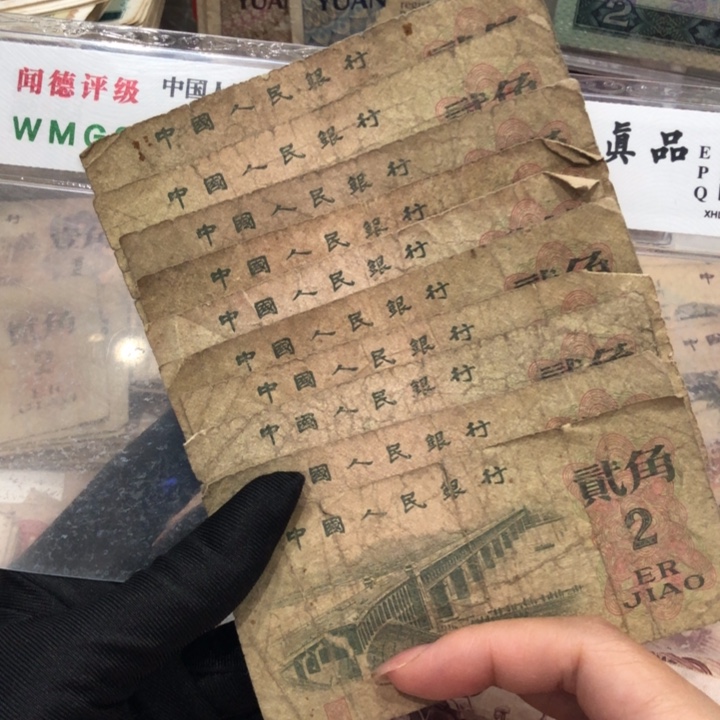 YUAN
YUAN
2
闻德评级
中国人
WMG
真品
E
P
Q
XH
中國人民銀行
中國人民銀行
中國人民銀行
中國人民銀行
中國人民銀行
中國人民銀行
中國人民銀行
中國人民銀行
國人民銀行
中國人民銀行
貳角
2
ER
JIAO
貳角
2
ER JIAO